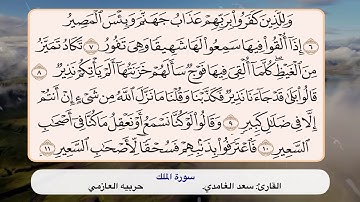 وَلِلَّذِينَ كَفَرُوا۟ بِرَبِّهِمْ عَذَابُ جَهَنَّمَ وَبِئْسَ ٱلْمَصِيرُ
٦ إِذَآ أُلْقُوا۟ فِيهَا سَمِعُوا۟ لَهَا شَهِيقًا وَهِىَ تَفُورُ ٧ تَكَادُ تَمَيَّزُ
مِنَ ٱلْغَيْظِ كُلَّمَآ أُلْقِىَ فِيهَا فَوْجٌ سَأَلَهُمْ خَزَنَتُهَآ أَلَمْ يَأْتِكُمْ نَذِيرٌ ٨
قَالُوا۟ بَلَىٰ قَدْ جَآءَنَا نَذِيرٌ فَكَذَّبْنَا وَقُلْنَا مَا نَزَّلَ ٱللَّهُ مِن شَىْءٍ إِنْ أَنتُمْ
إِلَّا فِى ضَلَٰلٍ كَبِيرٍ ٩ وَقَالُوا۟ لَوْ كُنَّا نَسْمَعُ أَوْ نَعْقِلُ مَا كُنَّا فِىٓ أَصْحَٰبِ
ٱلسَّعِيرِ ١٠ فَٱعْتَرَفُوا۟ بِذَنۢبِهِمْ فَسُحْقًا لِّأَصْحَٰبِ ٱلسَّعِيرِ ١١
سورة الملك
القارئ: سعد الغامدي. حربيه العازمي